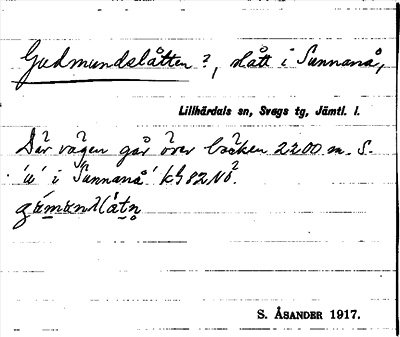 Gudmundslåtten?, slått i Sunnanå,
Lillhärdals sn, Svegs tg, Jämtl. l.
Där vägen går över bäcken 2200 m. S.
'u' i 'Sunnanå' kG 82 NÖ.
S. ÅSANDER 1917.